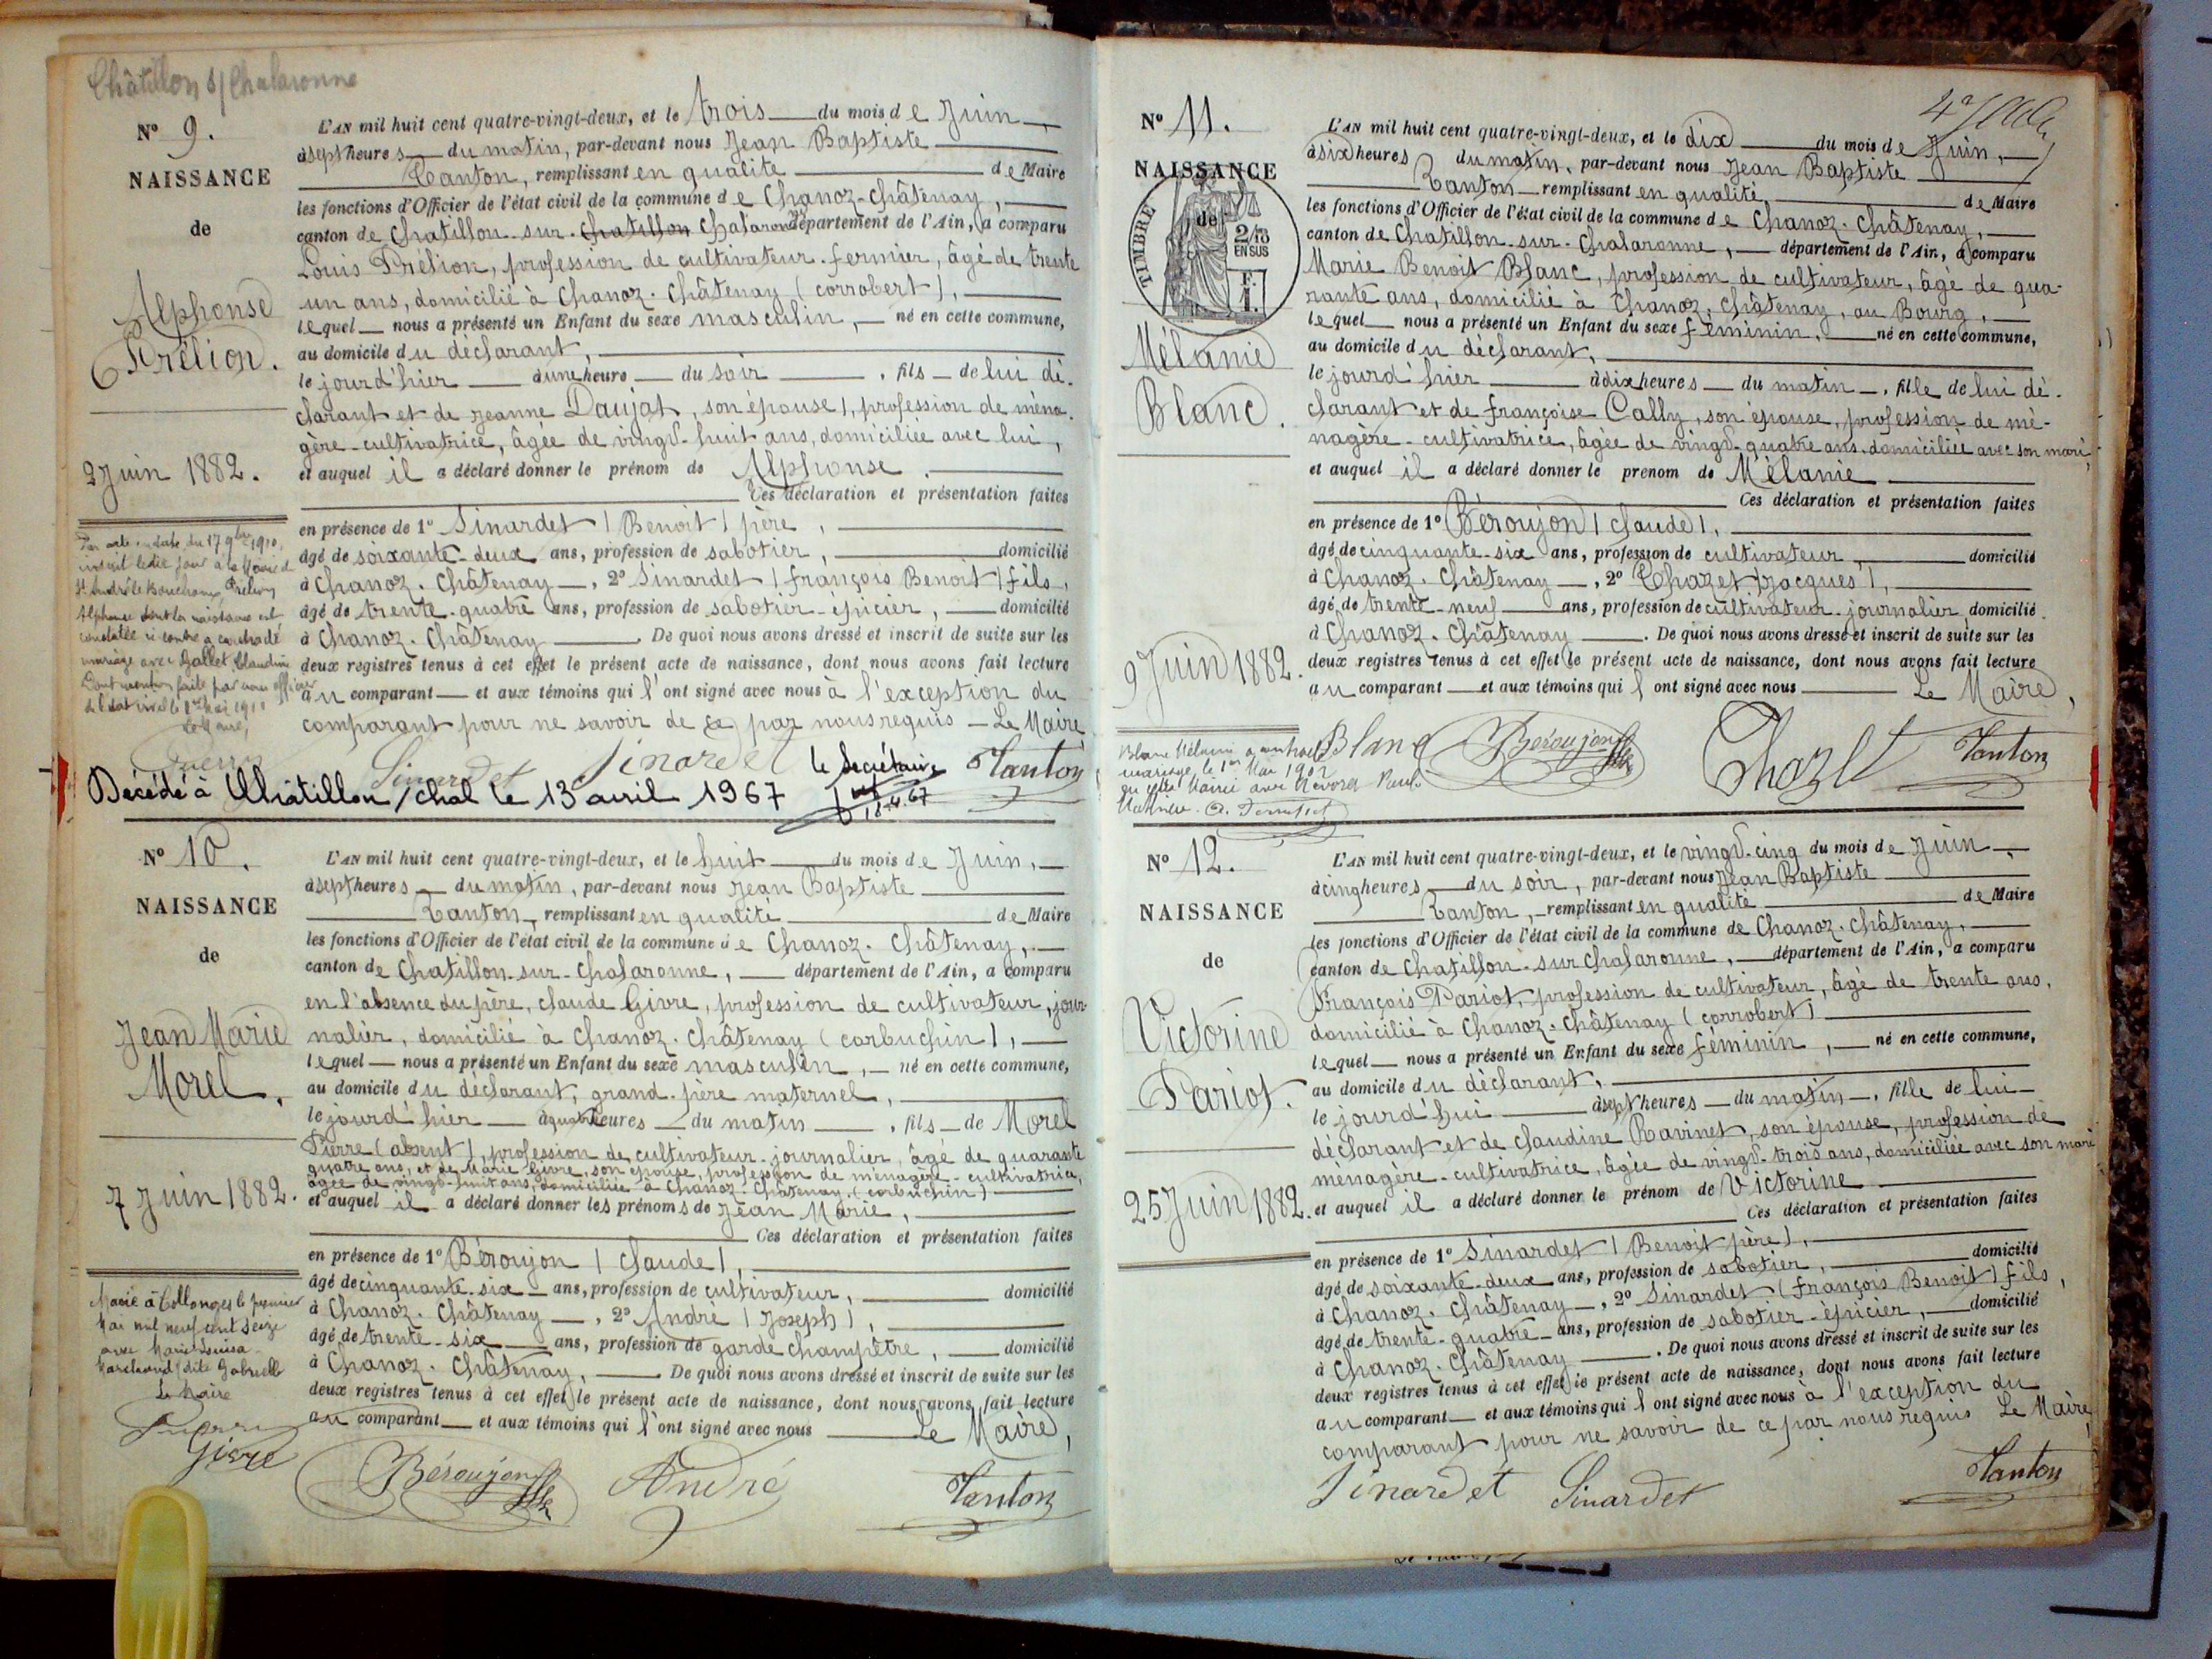 Châtillon s/ Chalaronne
N° 9.
NAISSANCE
de
Alphonse
Prélion.
2 Juin 1882.
L'AN mil huit cent quatre-vingt-deux, et le trois du mois de Juin,
à sept heures du matin, par-devant nous Jean Baptiste
Tanton, remplissant en qualité de Maire
les fonctions d'Officier de l'état civil de la commune de Chanoz-Châtenay,
canton de Chatillon-sur-Chatillon Chalaronne département de l'Ain, a comparu
Louis Prélion, profession de cultivateur-fermier, âgé de trente
un ans, domicilié à Chanoz-Châtenay (corrobert),
lequel nous a présenté un Enfant du sexe masculin, né en cette commune,
au domicile du déclarant,
le jourd'hier à une heure du soir, fils de lui dé-
clarant et de Jeanne Daujat, son épouse, profession de ména-
gère-cultivatrice, âgée de vingt-huit ans, domiciliée avec lui,
et auquel il a déclaré donner le prénom de Alphonse.
Ces déclaration et présentation faites
en présence de 1° Sinardet (Benoit) père,
âgé de soixante-deux ans, profession de sabotier, domicilié
à Chanoz-Châtenay, 2° Sinardet (françois Benoit) fils,
âgé de trente-quatre ans, profession de sabotier-épicier, domicilié
à Chanoz-Châtenay De quoi nous avons dressé et inscrit de suite sur les
deux registres tenus à cet effet le présent acte de naissance, dont nous avons fait lecture
au comparant et aux témoins qui l'ont signé avec nous à l'exception du
comparant pour ne savoir de ce par nous requis Le Maire
Par acte en date du 17 9bre 1910,
inscrit ledit jour à la Mairie de
St André le Bouchoux, Prélion
Alphonse dont la naissance est
constatée ci-contre a contracté
mariage avec Gallet Claudine
Dont mention faite par nous officier
de l'état civil le 1er Mai 1911
Le Maire,
Sinardet Sinardet le Secrétaire Tanton
Décédé à Châtillon/Chal le 13 avril 1967
18.4.67
N° 10.
NAISSANCE
de
Jean Marie
Morel.
7 Juin 1882.
L'AN mil huit cent quatre-vingt-deux, et le huit du mois de Juin,
à sept heures du matin, par-devant nous Jean Baptiste
Tanton, remplissant en qualité de Maire
les fonctions d'Officier de l'état civil de la commune de Chanoz-Châtenay,
canton de Chatillon-sur-Chalaronne, département de l'Ain, a comparu
en l'absence du père, claude Givre, profession de cultivateur, jour-
nalier, domicilié à Chanoz-Châtenay (corbuchin),
lequel nous a présenté un Enfant du sexe masculin, né en cette commune,
au domicile du déclarant, grand-père maternel,
le jourd'hier à quatre heures du matin, fils de Morel
Pierre (absent), profession de cultivateur-journalier, âgé de quarante
quatre ans, et de Marie Givre, son épouse, profession de ménagère-cultivatrice,
âgée de vingt-huit ans, domiciliée à Chanoz-Châtenay (corbuchin)
et auquel il a déclaré donner les prénoms de Jean Marie,
Ces déclaration et présentation faites
en présence de 1° Béroujon (Claude),
âgé de cinquante-six ans, profession de cultivateur, domicilié
à Chanoz-Châtenay, 2° André (Joseph),
âgé de trente-six ans, profession de garde champêtre, domicilié
à Chanoz-Châtenay, De quoi nous avons dressé et inscrit de suite sur les
deux registres tenus à cet effet le présent acte de naissance, dont nous avons fait lecture
au comparant et aux témoins qui l'ont signé avec nous Le Maire,
Marié à Collonges le premier
Mai mil neuf cent seize
avec Marie Louisa
Marchand dite Gabrielle
Le Maire
Givre Béroujon André Tanton
N° 11.
NAISSANCE
de
TIMBRE
2/10
EN SUS
F.
1.
Mélanie
Blanc.
9 Juin 1882.
L'AN mil huit cent quatre-vingt-deux, et le dix du mois de Juin,
à six heures du matin, par-devant nous Jean Baptiste
Tanton remplissant en qualité de Maire
les fonctions d'Officier de l'état civil de la commune de Chanoz-Châtenay,
canton de Chatillon-sur-Chalaronne, département de l'Ain, a comparu
Marie Benoit Blanc, profession de cultivateur, âgé de qua-
rante ans, domicilié à Chanoz-Châtenay, au Bourg,
lequel nous a présenté un Enfant du sexe féminin, né en cette commune,
au domicile du déclarant,
le jourd'hier à dix heures du matin, fille de lui dé-
clarant et de françoise Cally, son épouse, profession de mé-
nagère-cultivatrice, âgée de vingt-quatre ans, domiciliée avec son mari,
et auquel il a déclaré donner le prénom de Mélanie
Ces déclaration et présentation faites
en présence de 1° Béroujon (claude),
âgé de cinquante-six ans, profession de cultivateur domicilié
à Chanoz-Châtenay, 2° Chazet (Jacques),
âgé de trente-neuf ans, profession de cultivateur-journalier domicilié
à Chanoz-Châtenay. De quoi nous avons dressé et inscrit de suite sur les
deux registres tenus à cet effet le présent acte de naissance, dont nous avons fait lecture
au comparant et aux témoins qui l'ont signé avec nous Le Maire,
Blanc Mélanie a contracté
mariage le 1er Mai 1902
en cette Mairie avec Paul
Blanc Béroujon Chazet Tanton
N° 12.
NAISSANCE
de
Victorine
Pariot.
25 Juin 1882.
L'AN mil huit cent quatre-vingt-deux, et le vingt-cinq du mois de Juin,
à cinq heures du soir, par-devant nous Jean Baptiste
Tanton, remplissant en qualité de Maire
les fonctions d'Officier de l'état civil de la commune de Chanoz-Châtenay,
canton de Chatillon-sur Chalaronne, département de l'Ain, a comparu
François Pariot, profession de cultivateur, âgé de trente ans,
domicilié à Chanoz-Châtenay (corrobert)
lequel nous a présenté un Enfant du sexe féminin, né en cette commune,
au domicile du déclarant,
le jourd'hui à sept heures du matin, fille de lui
déclarant et de claudine Ravinet, son épouse, profession de
ménagère-cultivatrice, âgée de vingt-trois ans, domiciliée avec son mari
et auquel il a déclaré donner le prénom de Victorine
Ces déclaration et présentation faites
en présence de 1° Sinardet (Benoit père),
âgé de soixante-deux ans, profession de sabotier, domicilié
à Chanoz-Châtenay, 2° Sinardet (françois Benoit) fils,
âgé de trente-quatre ans, profession de sabotier-épicier, domicilié
à Chanoz-Châtenay. De quoi nous avons dressé et inscrit de suite sur les
deux registres tenus à cet effet le présent acte de naissance, dont nous avons fait lecture
au comparant et aux témoins qui l'ont signé avec nous à l'exception du
comparant pour ne savoir de ce par nous requis Le Maire,
Sinardet Sinardet Tanton